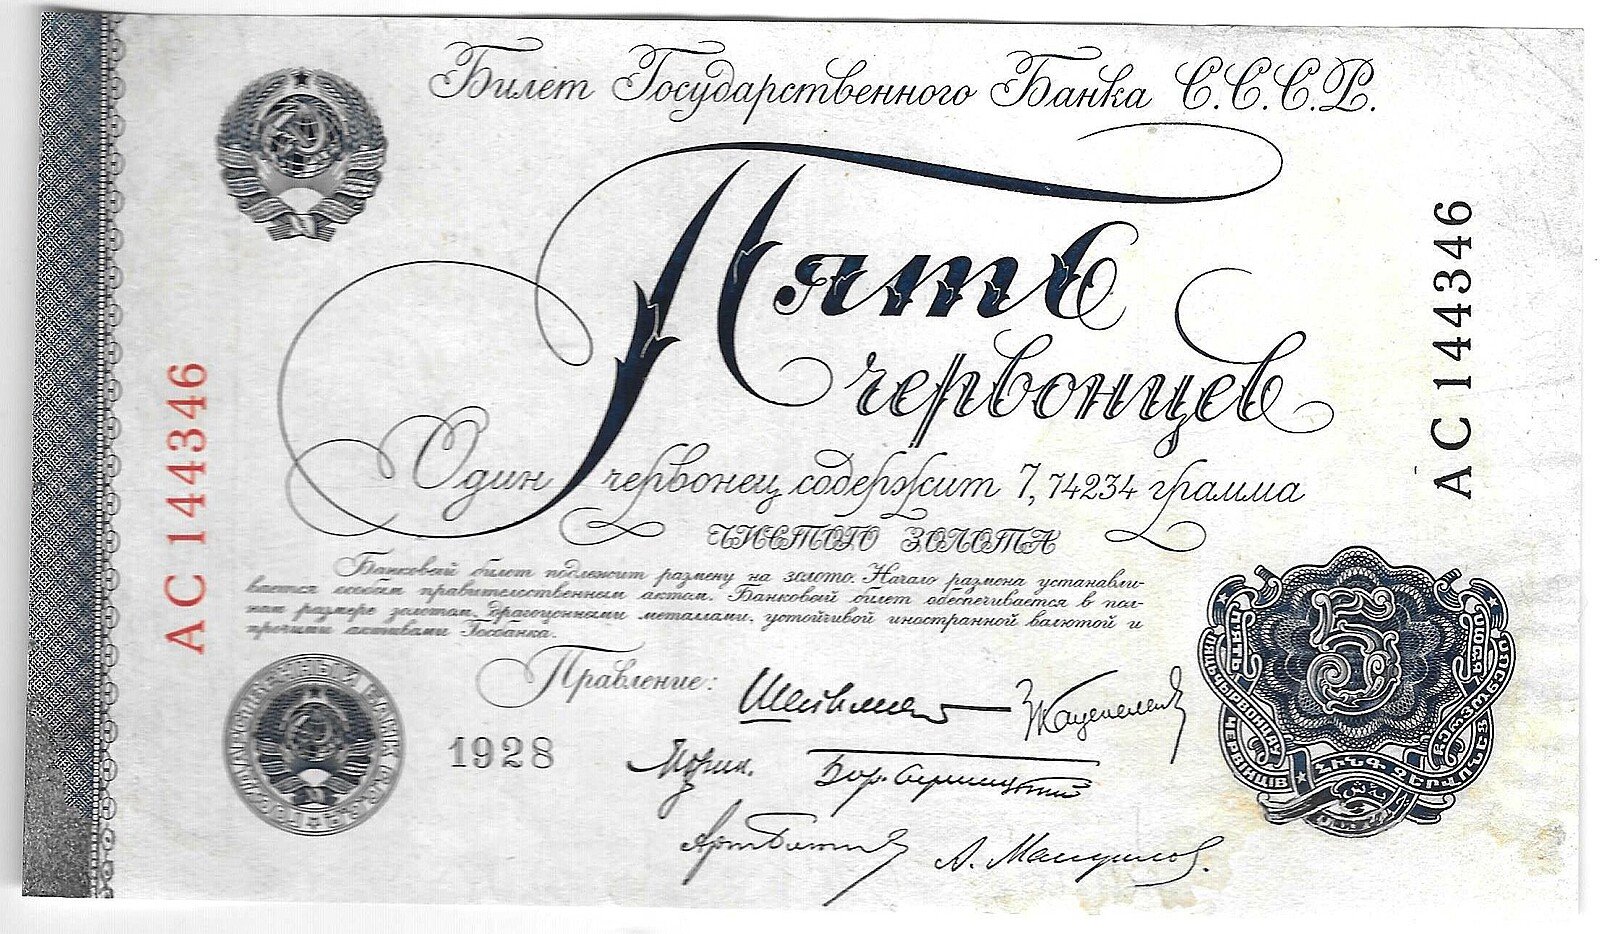 Билет Государственного Банка С.С.С.Р.
Пять
червонцев
Один червонец содержит 7,74234 грамма
чистого золота
Банковый билет подлежит размену на золото. Начало размена устанавли-
вается особым правительственным актом. Банковый билет обеспечивается в пол-
ном размере золотом, драгоценными металлами, устойчивой иностранной валютой и
прочими активами Госбанка.
Правление:
1928
АС 144346
АС 144346
5
ПЯТЬ
ЧЕРВОНЦЕВ
ՀԻՆԳ ՉԵՐՎՈՆԵՑ